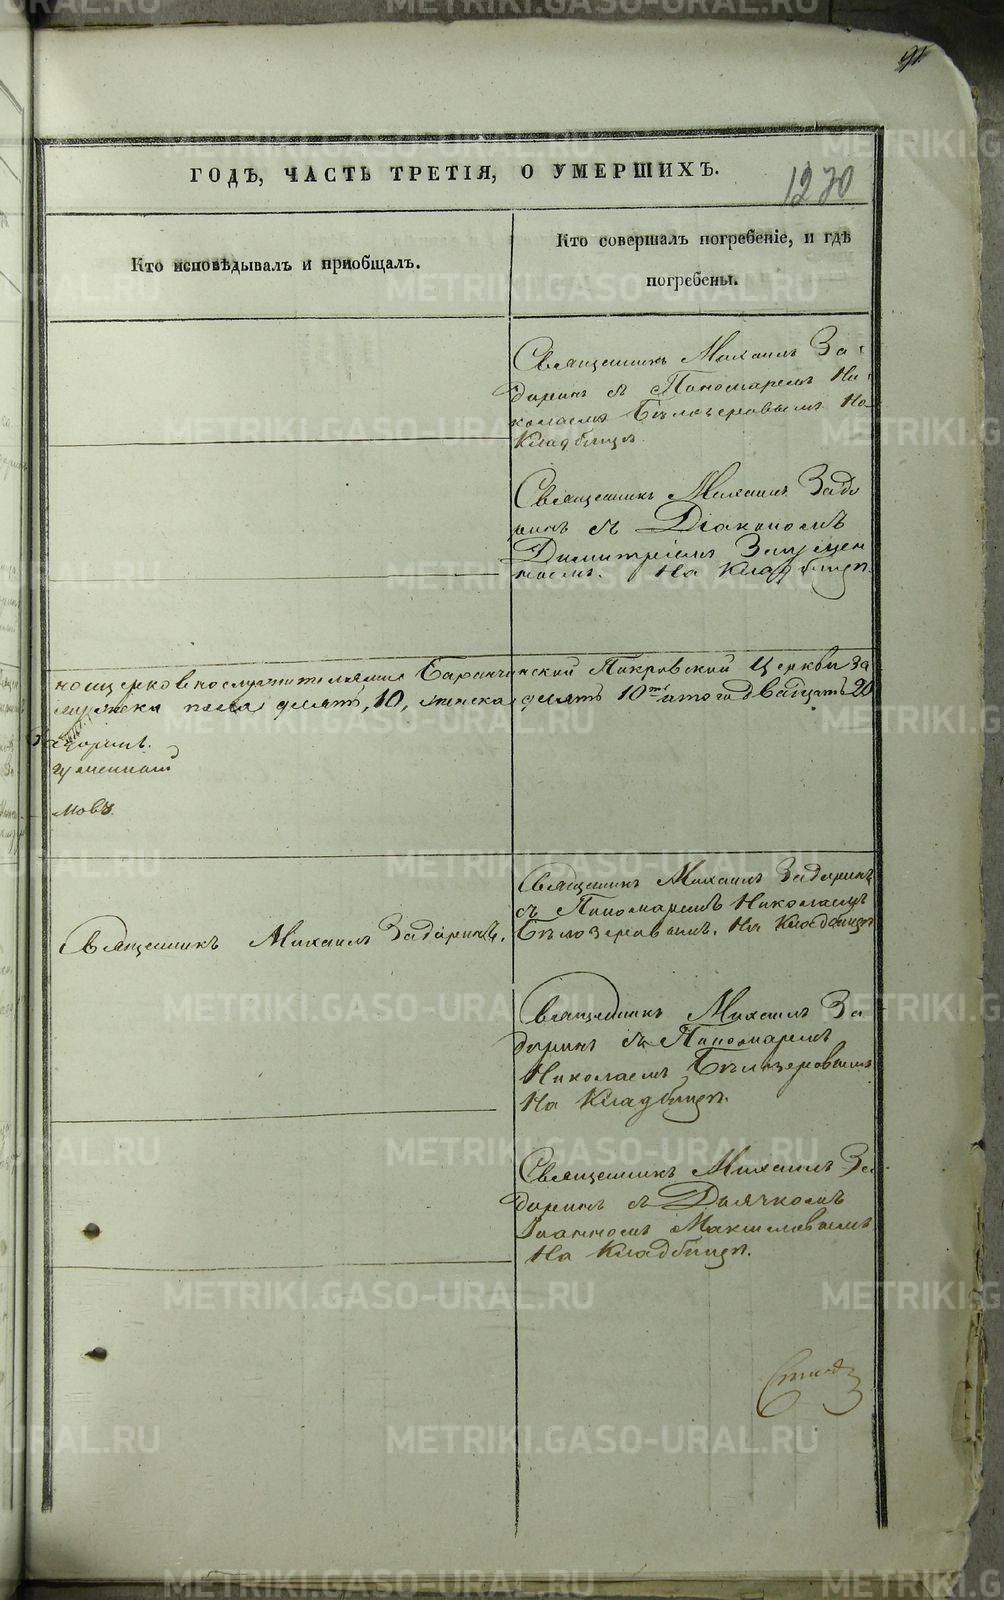 91
ГОДЪ, ЧАСТЬ ТРЕТІЯ, О УМЕРШИХЪ.
1270
Кто исповѣдывалъ и пріобщалъ.
Кто совершалъ погребеніе, и гдѣ
погребены.
Священникъ Михаилъ За-
доринъ съ Пономаремъ Ни-
колаемъ Бѣлозеровымъ На
Кладбищѣ
Священникъ Михаилъ Задо
ринъ съ Діакономъ
Димитріемъ
На Кладбищѣ.
ноцерковнослужителями Баранчинской Покровской Церкви За
мужеска пола десять, 10, женска десять 10ть итого двадцать 20
Задоринъ.
мовъ
Священникъ Михаилъ Задоринъ.
Священникъ Михаилъ Задоринъ
съ Пономаремъ Николаемъ
Бѣлозеровымъ. На Кладбищѣ
Священникъ Михаилъ За
доринъ съ Пономаремъ
Николаемъ Бѣлозеровымъ
На Кладбищѣ.
Священникъ Михаилъ За
доринъ съ Дьячкомъ
Іоанномъ Максимовымъ
На Кладбищѣ.
METRIKI.GASO-URAL.RU